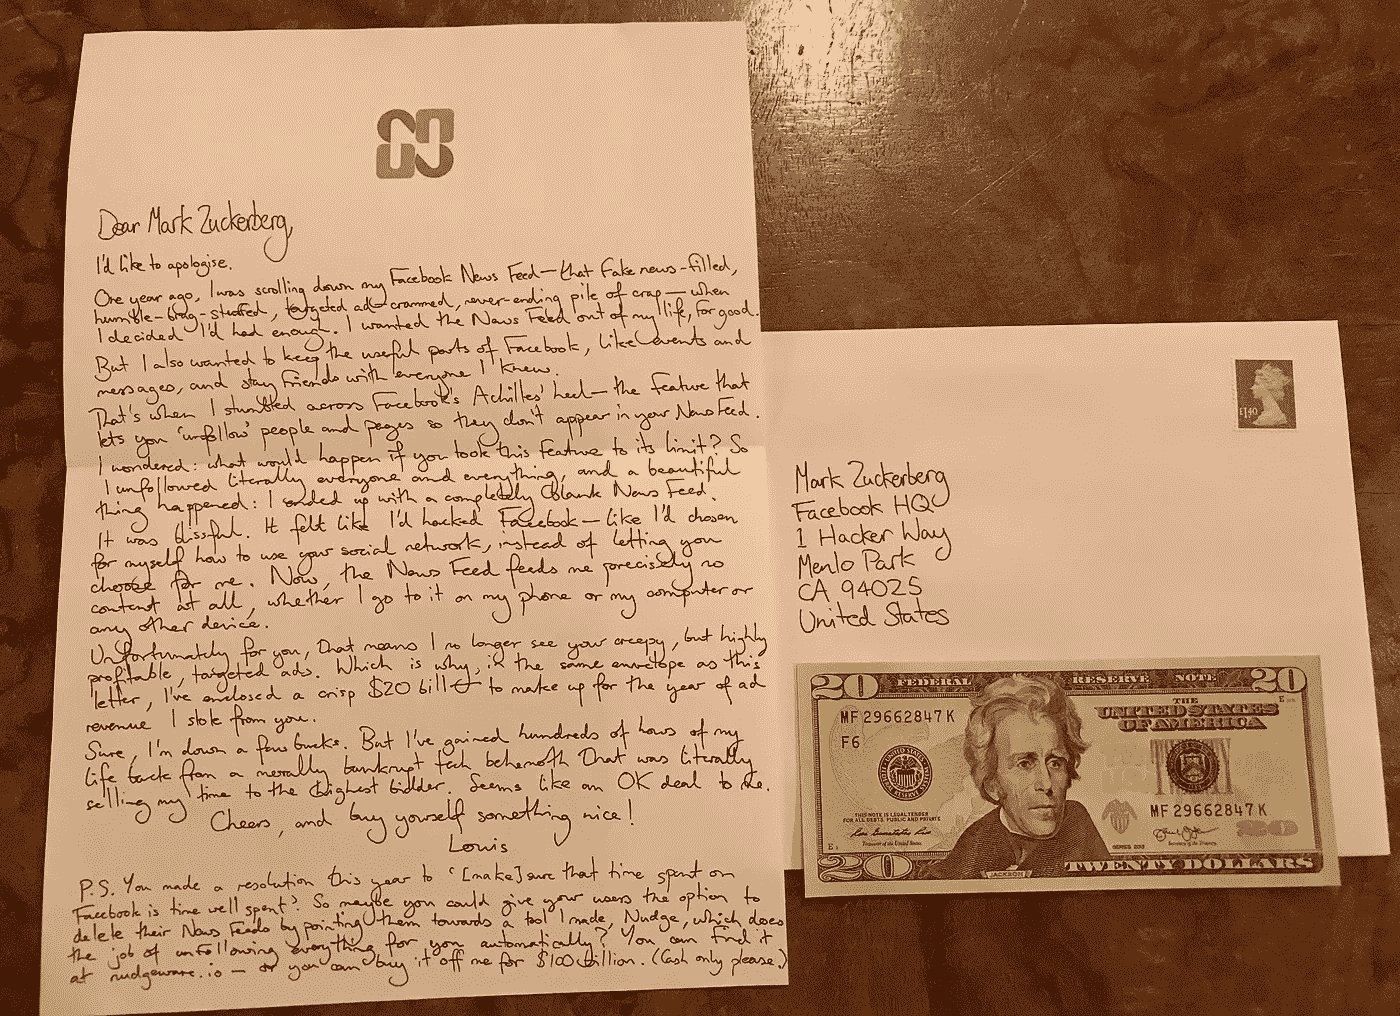 Dear Mark Zuckerberg,
I'd like to apologise.
One year ago, I was scrolling down my Facebook News Feed — that fake news-filled,
humble-brag-stuffed, targeted ad-crammed, never-ending pile of crap — when
I decided I'd had enough. I wanted the News Feed out of my life, for good.
But I also wanted to keep the useful parts of Facebook, like events and
messages, and stay friends with everyone I knew.
That's when I stumbled across Facebook's Achilles' heel — the feature that
lets you 'unfollow' people and pages so they don't appear in your News Feed.
I wondered: what would happen if you took this feature to its limit? So
I unfollowed literally everyone and everything, and a beautiful
thing happened: I ended up with a completely blank News Feed.
It was blissful. It felt like I'd hacked Facebook — like I'd chosen
for myself how to use your social network, instead of letting you
choose for me. Now, the News Feed feeds me precisely no
content at all, whether I go to it on my phone or my computer or
any other device.
Unfortunately for you, that means I no longer see your creepy, but highly
profitable, targeted ads. Which is why, in the same envelope as this
letter, I've enclosed a crisp $20 bill to make up for the year of ad
revenue I stole from you.
Sure, I'm down a few bucks. But I've gained hundreds of hours of my
life back from a morally bankrupt tech behemoth that was literally
selling my time to the highest bidder. Seems like an OK deal to me.
Cheers, and buy yourself something nice!
Louis
P.S. You made a resolution this year to '[make] sure that time spent on
Facebook is time well spent'. So maybe you could give your users the option to
delete their News Feeds by pointing them towards a tool I made, Nudge, which does
the job of unfollowing everything for you automatically? You can find it
at nudgeware.io — or you can buy it off me for $100 billion. (Cash only please.)
£1.40
Mark Zuckerberg
Facebook HQ
1 Hacker Way
Menlo Park
CA 94025
United States
20 FEDERAL RESERVE NOTE 20
THE
UNITED STATES
OF AMERICA
MF 29662847 K
F6
THIS NOTE IS LEGAL TENDER
FOR ALL DEBTS, PUBLIC AND PRIVATE
MF 29662847 K
Treasurer of the United States
Secretary of the Treasury
20 JACKSON TWENTY DOLLARS